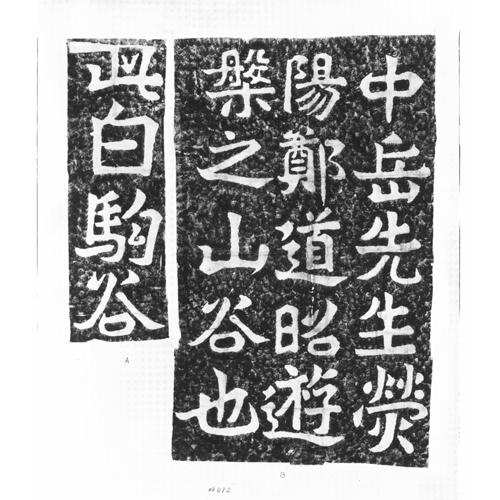 中岳先生熒
陽鄭道昭遊
槃之山谷也
此白駒谷
A
B